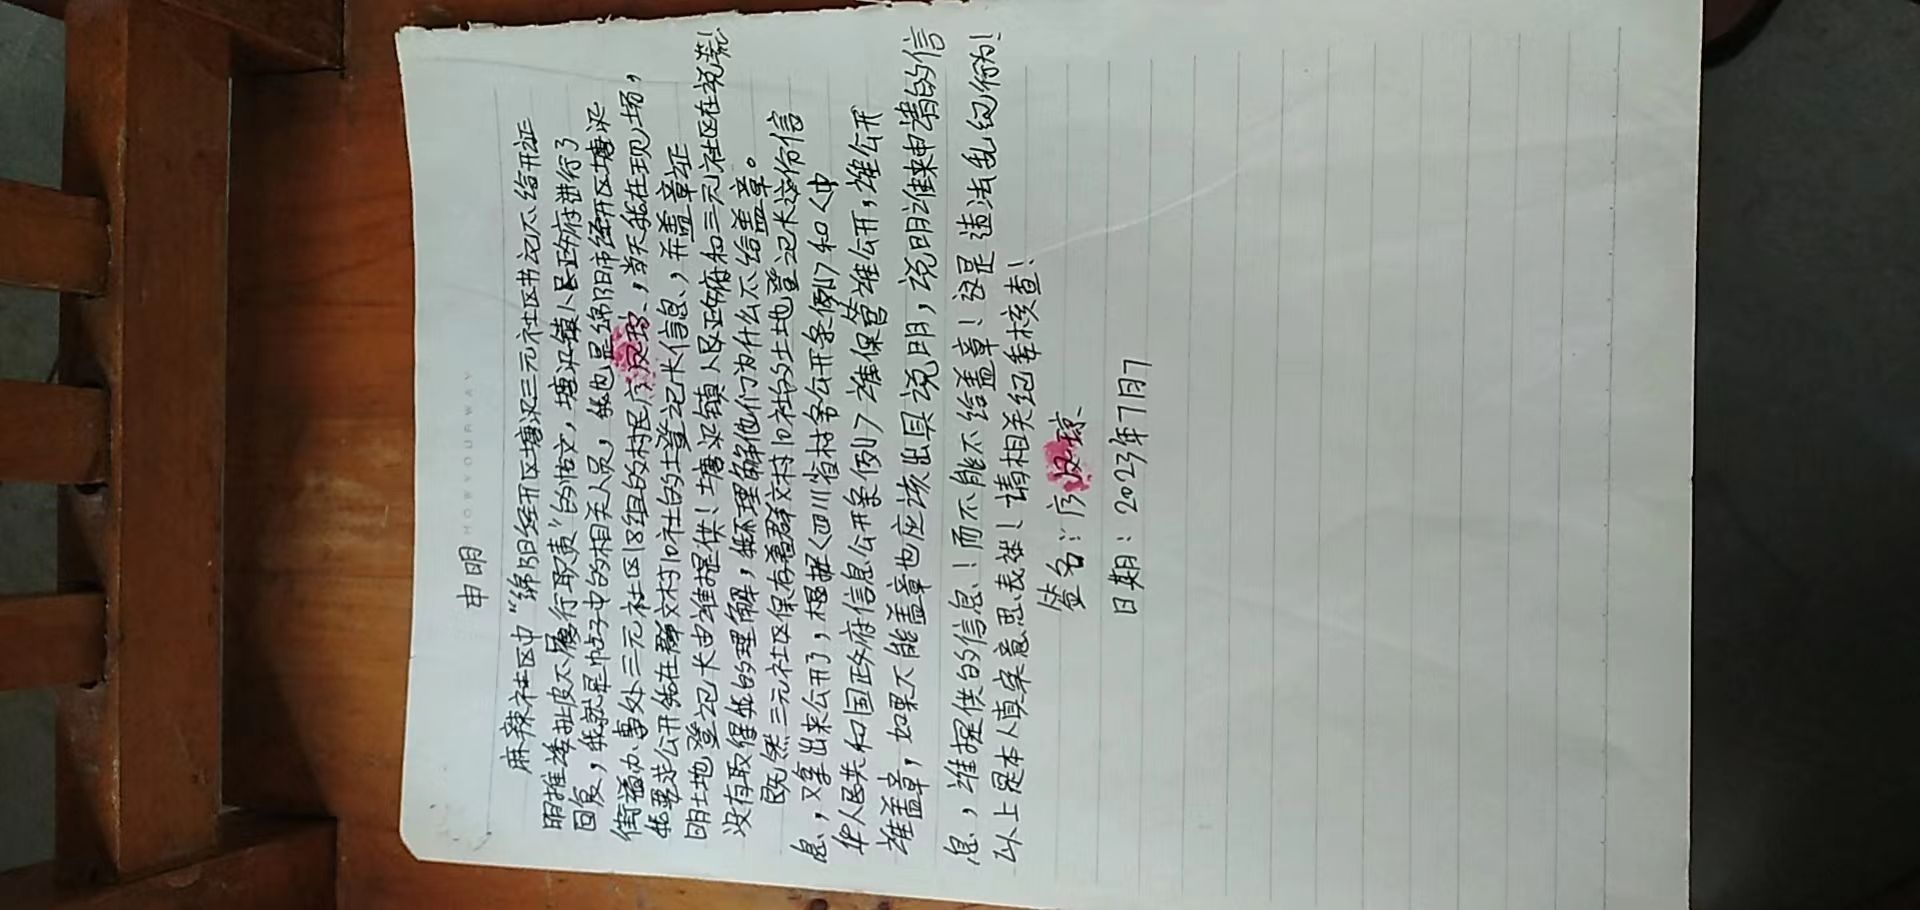 HOWYOURWAY
申明
麻辣社区中“绵阳经开区塘汛三元社区书记不给开证
明推诿扯皮不履行取责”的帖文，塘汛镇人民政府进行了
回复，我就是帖子中的相关人员，我也是绵阳市经开区塘汛
街道办事处三元社区18组的村民，当天我在现场，
我要求公开我在群文村10社的土地登记卡信息，并盖章证
明土地登记卡由谁提供！塘汛镇人民政府和三元社区在说谎！
没有取得我的理解，我不理解他们为什么不给盖章。
既然三元社区保存着群文村10社的土地登记卡这份信
息，又拿出来公开了，根据《四川省村务公开条例》和《中
华人民共和国政府信息公开条例》谁保管谁公开，谁公开
谁盖章，如果不能盖章也应该出具说明，说明谁来申请的信
息，谁提供的信息！而不能不给盖章！这是违法乱纪行为！
以上是本人真实意思表达！请相关纪委核查！
签名：
日期：2023年7月7